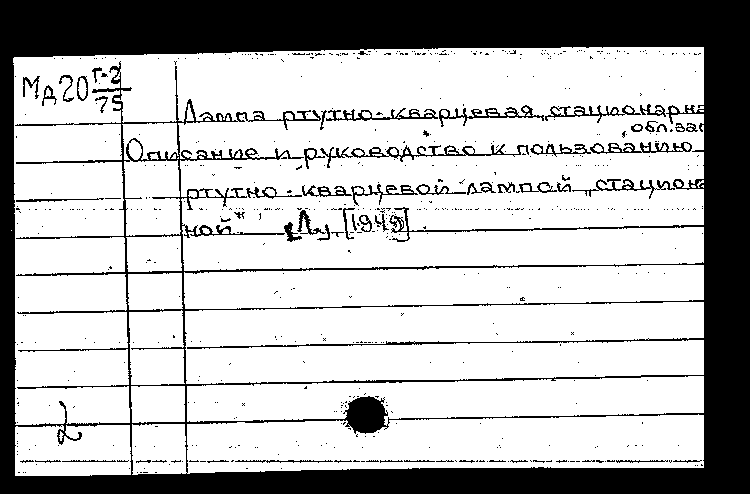 Мд20 Г-2/75
Лампа ртутно-кварцевая „стационарна
обл. заг
Описание и руководство к пользованию
ртутно-кварцевой лампой „стацион
ной". [1949]
2